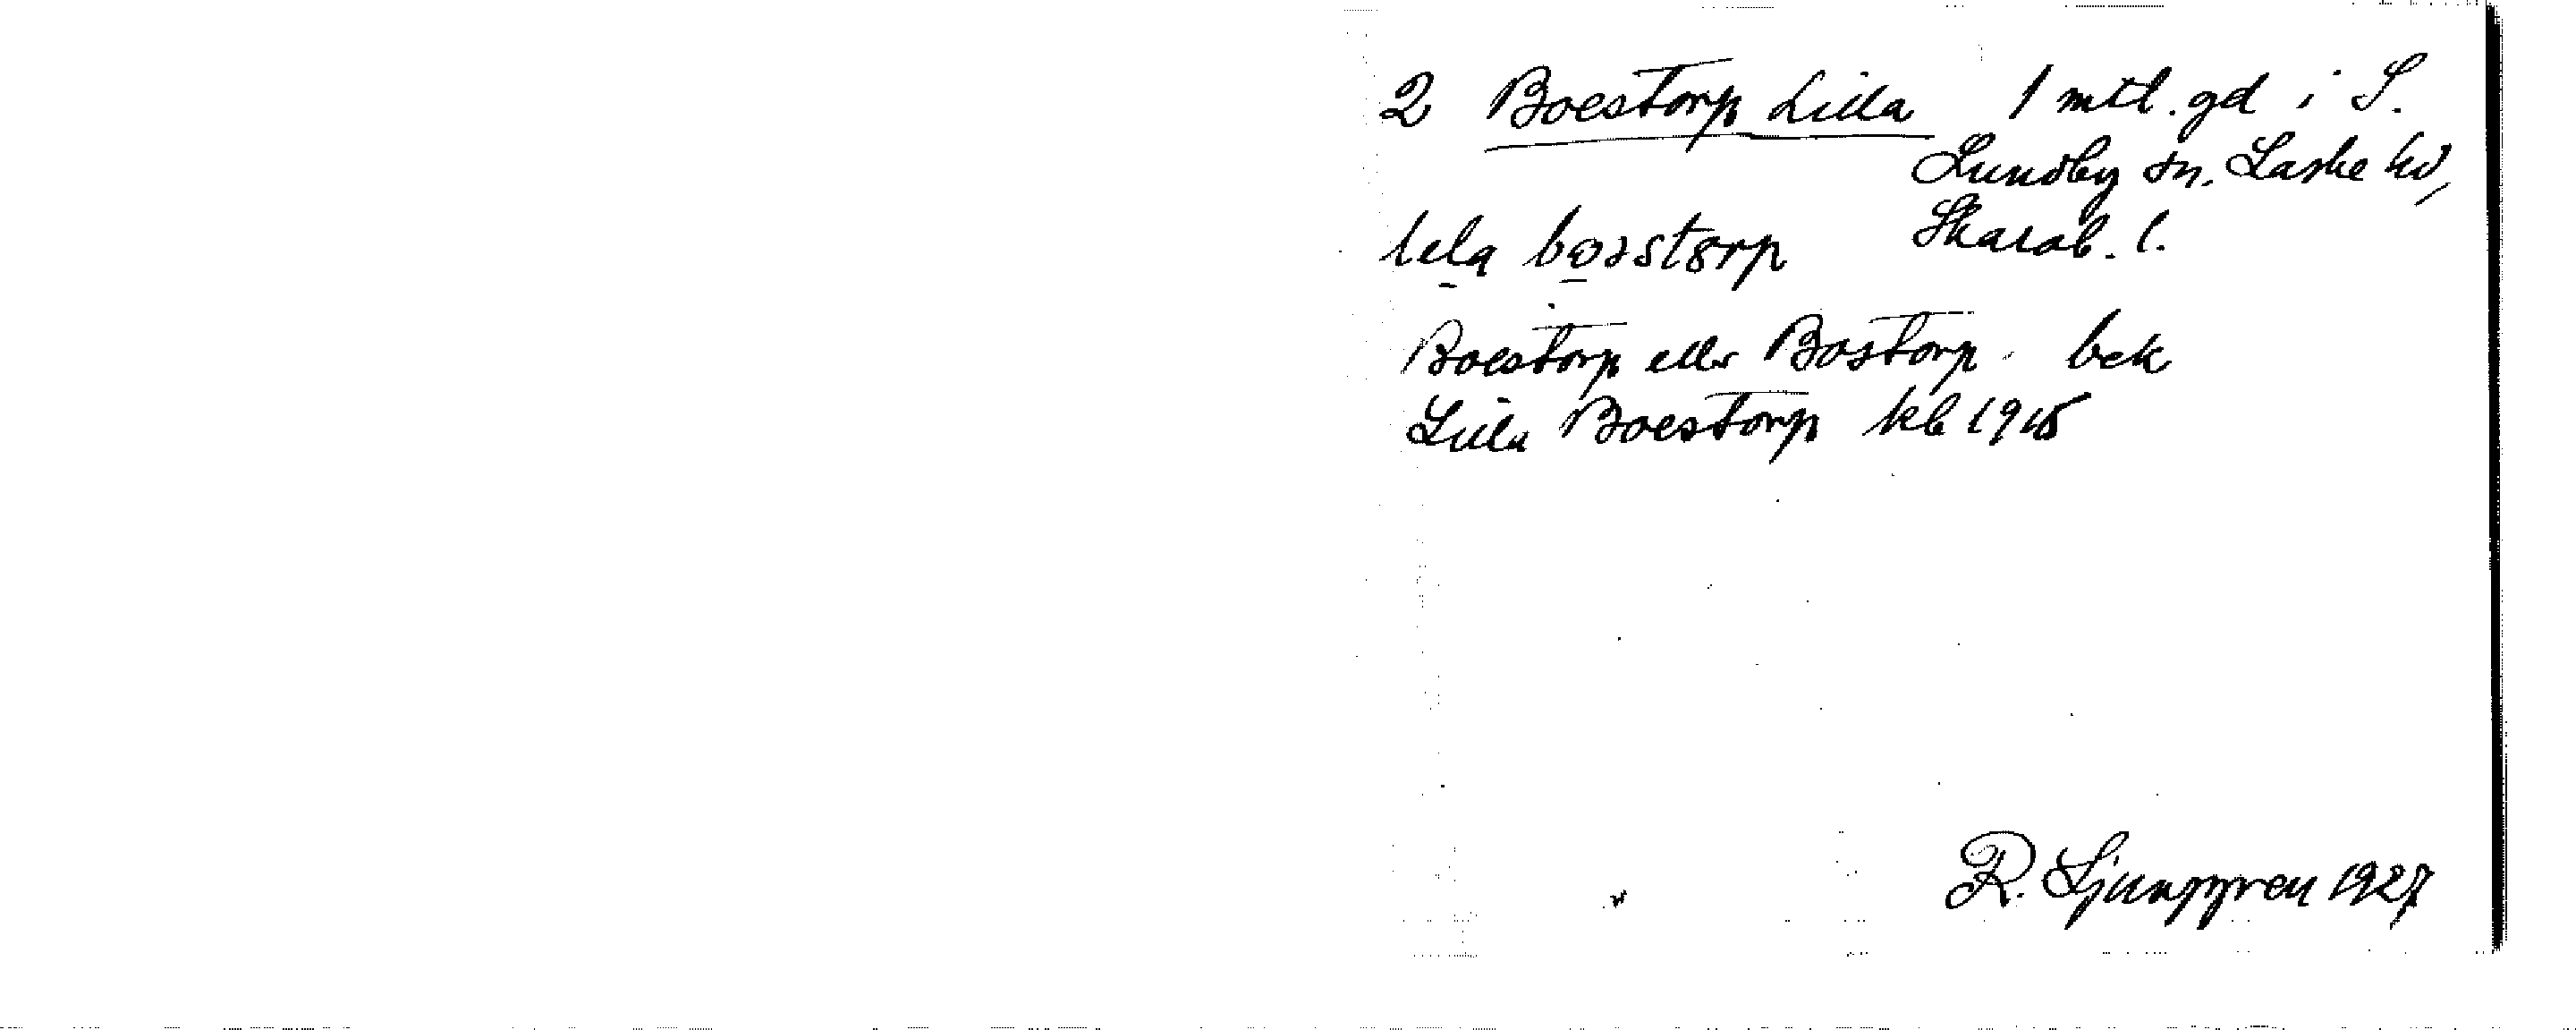 2 Boestorp Lilla 1 mtl. gd i S.
Lundby sn. Laske hd,
Skarab. l.
lela boostorp
Boestorp eller Bostorp. bek
Lilla Boestorp kb 1915
R. Ljunggren 1927